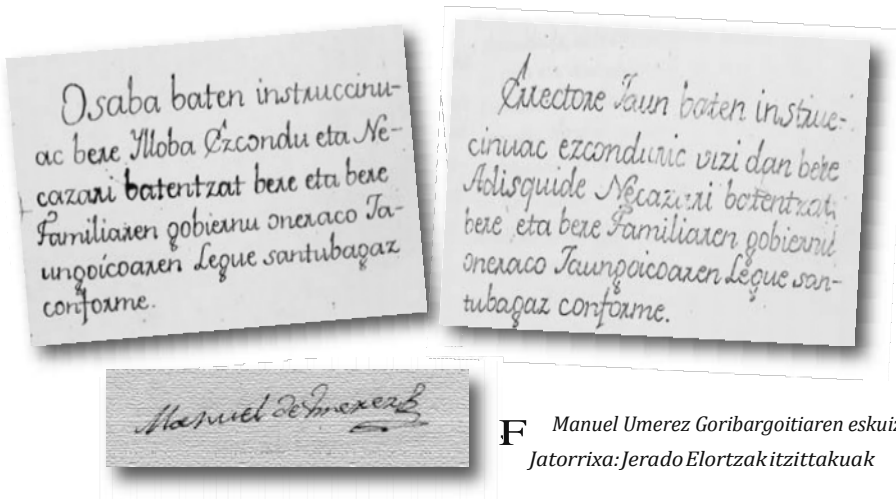 Osaba baten instruccinu-
ac bere Ylloba Ezcondu eta Ne-
cazari batentzat bere eta bere
Familiaren gobiernu oneraco Ja-
ungoicoaren Legue santubagaz
conforme.
Errectore Jaun baten instruc-
cinuac ezconduric vizi dan bere
Adisquide Necazari batentzat,
bere eta bere Familiaren gobiernu
oneraco Jaungoicoaren Legue san-
tubagaz conforme.
Manuel de Umerez
F Manuel Umerez Goribargoitiaren eskuiz
Jatorrixa: Jerado Elortzak itzittakuak